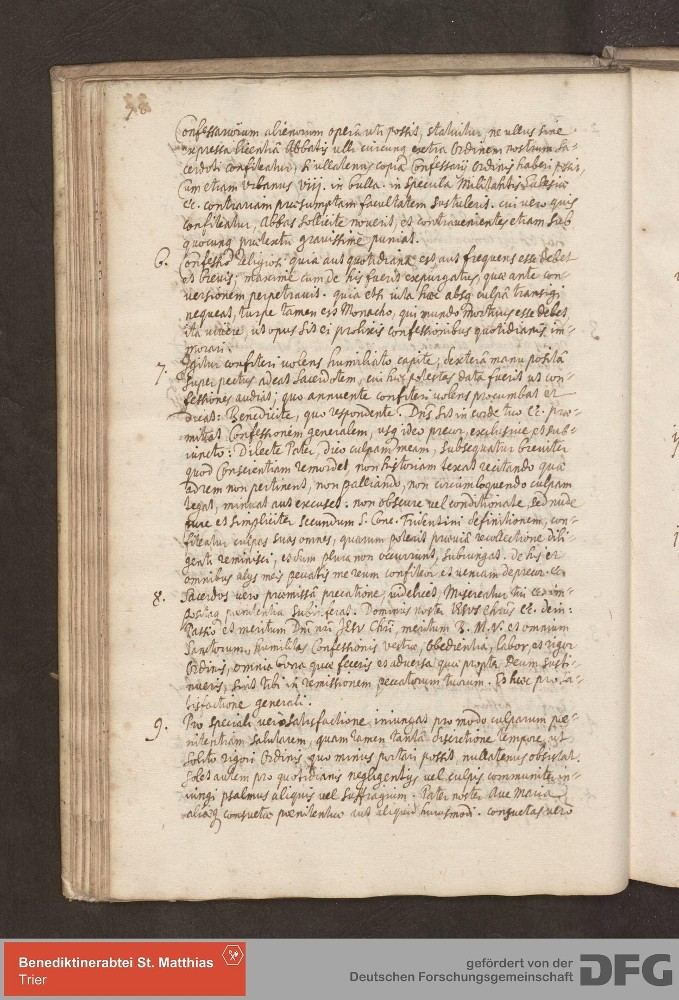 78
Confessariorum alienorum operâ uti possit, statuitur, ne ullus sine
expressa licentiâ Abbatis ulli cuicunq extra Ordinem nostrum Sa-
cerdoti confiteatur, si ullatenus copia Confessarij Ordinis haberi possit,
cum etiam Urbanus VIII. in bulla. in specula Militantis Ecclesiæ
&c. contrariam præsumptam facultatem sustulerit. cui vero quis
confiteatur, Abbas sollicite noverit, et contravenientes etiam sub
quocunq prætextu gravissime puniat.
6. Confessio Religiosi quia aut quotidiana est aut frequens esse debet
et brevis; maxime cum de his fuerit expurgatus, quæ ante con-
versionem perpetravit. quia etsi vita hæc absq culpâ transigi
nequeat, turpe tamen est Monacho, qui mundo mortuus esse debet,
ita vivere, ut opus sit ei prolixis confessionibus quotidianis im-
morari.
7. Igitur confiteri volens humiliato capite, dexterâ manu positâ
super pectus adeat Sacerdotem, cui hæc potestas data fuerit ut con-
fessiones audiat; quo annuente confiteri volens procumbat et
dicat: Benedicite, quo respondente. Dns sit in corde tuo &c. præ-
mittat Confessionem generalem, usq ideo precor, exclusive et sub-
iuncto: Dilecte Pater, dico culpam meam, subsequatur breviter
quod Conscientiam remordet, non historiam texat recitando quæ
ad rem non pertinent, non palliando, non circumloquendo culpam
tegat, minuat aut excuset: non obscure vel conditionate, sed nude
pure et simpliciter secundum S. Conc. Tridentini definitionem, con-
fiteatur culpas suas omnes, quarum poterit præviâ recollectione dili-
genti reminisci, et dum plura non occurrunt, subiungat. de his et
omnibus alijs meis peccatis me reum confiteor et veniam deprecor &c.
8. Sacerdos vero præmissâ precatione, videlicet, Misereatur tui &c. im-
positaq pænitentia subinferat. Dominus noster IESUS Chrus &c. dein:
Passio et meritum Dni nri Jesu Chri, meritum B. M. V. et omnium
Sanctorum, humilitas Confessionis vestræ, Obedientia, labor, et rigor
Ordinis, omnia bona quæ feceris et adversa quæ propter Deum susti-
nueris, sint tibi in remissionem peccatorum tuorum. Et hæc pro sa-
tisfactione generali.
9. Pro speciali vero satisfactione iniungat pro modo culparum pæ-
nitentiam salutarem, quam tamen tantâ discretione temperet, ut
solito rigori Ordinis, quo minus portari possit, nullatenus obsistat.
Solet autem pro quotidianis negligentijs vel culpis communiter in-
iungi psalmus aliquis vel Suffragium. Pater noster Ave Maria
aliæq consuetæ pænitentiæ aut aliquid huiusmodi. consuetas vero
Benediktinerabtei St. Matthias
Trier
gefördert von der
Deutschen Forschungsgemeinschaft
DFG